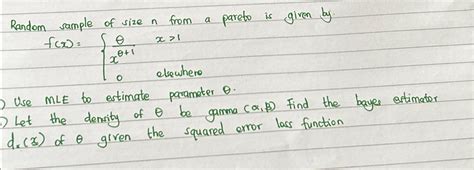 Random sample of size n from a pareto is given by
f(x) = { θ / x^(θ+1)   x > 1
0   elsewhere
) Use MLE to estimate parameter θ.
) Let the density of θ be gamma (α, β) Find the bayes estimator
d_x(x) of θ given the squared error loss function